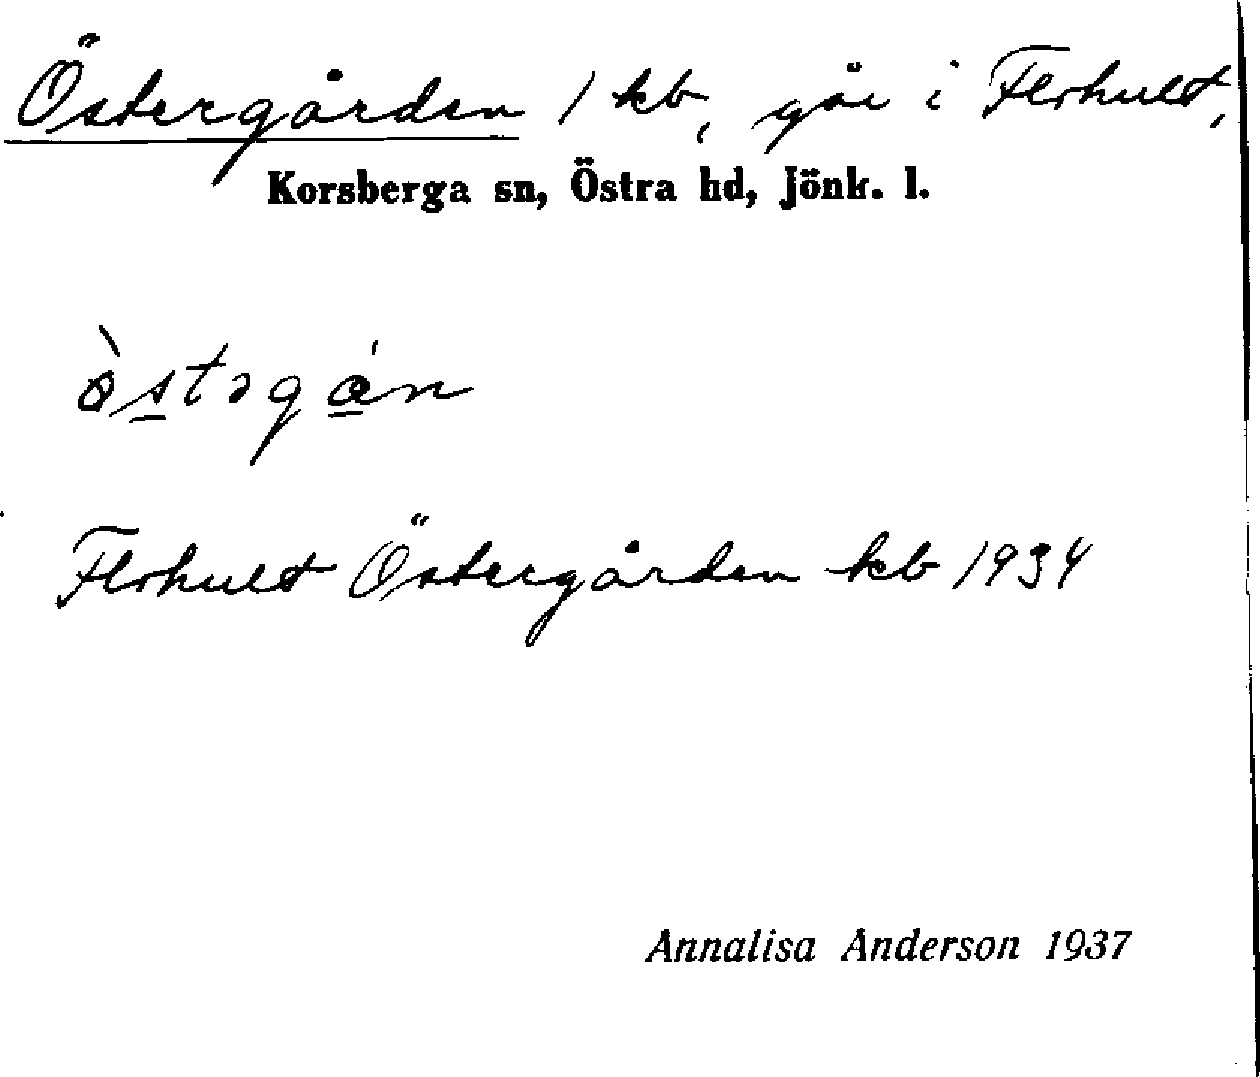 Östergården 1 kb, går i Flohult,
Korsberga sn, Östra hd, Jönk. l.
Flohult Östergården kb 1934
Annalisa Anderson 1937